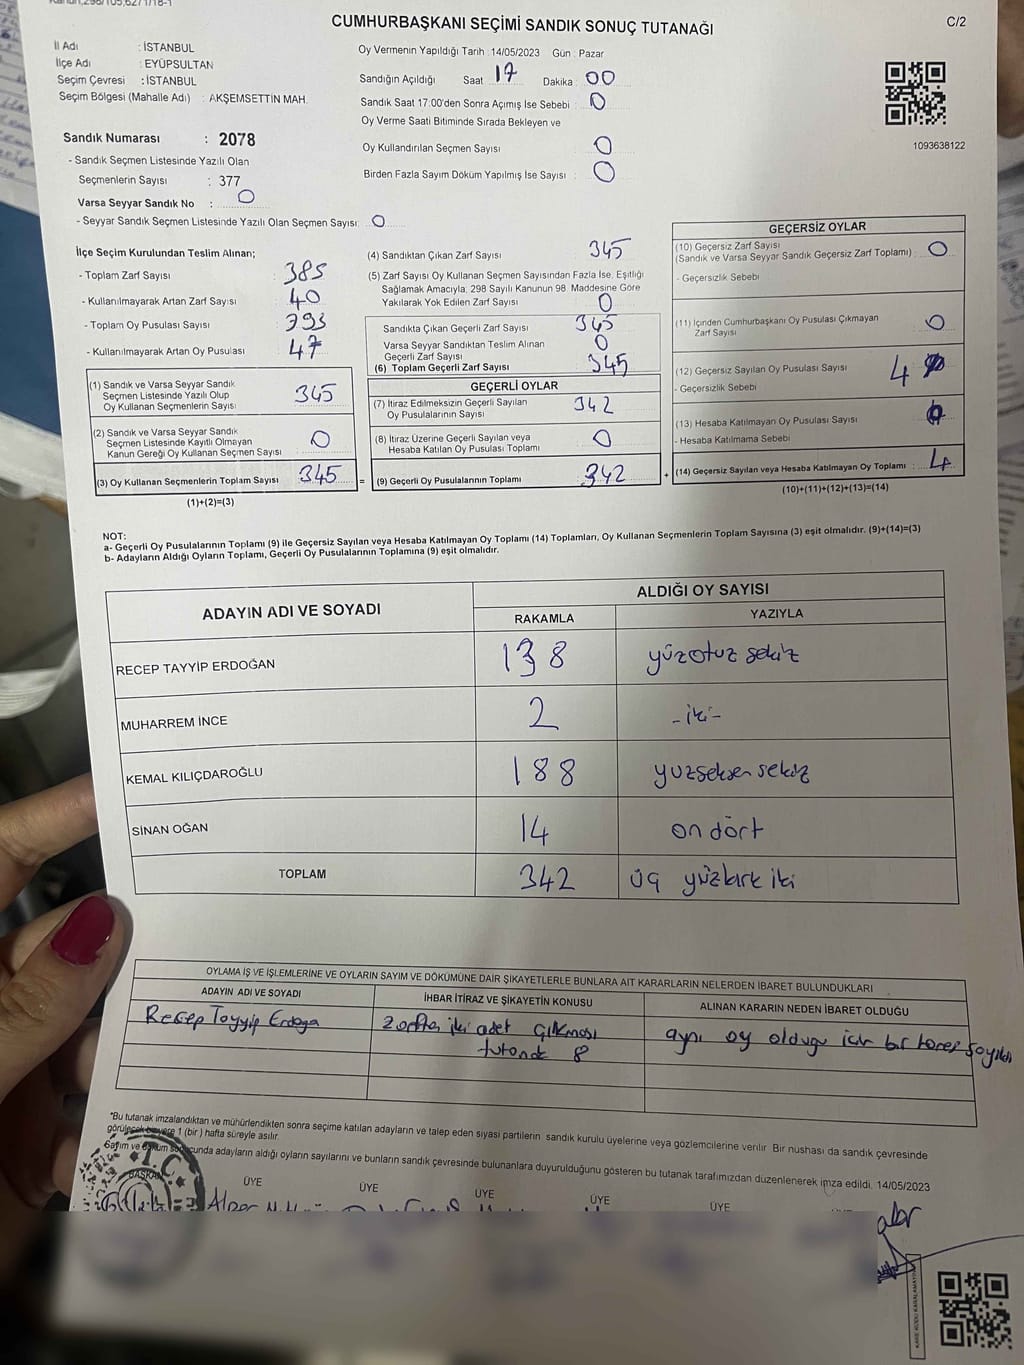 CUMHURBAŞKANI SEÇİMİ SANDIK SONUÇ TUTANAĞI
C/2
İl Adı : İSTANBUL
İlçe Adı : EYÜPSULTAN
Seçim Çevresi : İSTANBUL
Seçim Bölgesi (Mahalle Adı) : AKŞEMSETTİN MAH.
Oy Vermenin Yapıldığı Tarih :14/05/2023 Gün : Pazar
Sandığın Açıldığı Saat 17 Dakika : 00
Sandık Saat 17:00'den Sonra Açımış İse Sebebi : 0
Oy Verme Saati Bitiminde Sırada Bekleyen ve
Oy Kullandırılan Seçmen Sayısı 0
Birden Fazla Sayım Döküm Yapılmış İse Sayısı : 0
1093638122
Sandık Numarası : 2078
- Sandık Seçmen Listesinde Yazılı Olan
Seçmenlerin Sayısı : 377
Varsa Seyyar Sandık No : 0
- Seyyar Sandık Seçmen Listesinde Yazılı Olan Seçmen Sayısı: 0
İlçe Seçim Kurulundan Teslim Alınan;
- Toplam Zarf Sayısı : 385
- Kullanılmayarak Artan Zarf Sayısı : 40
- Toplam Oy Pusulası Sayısı : 393
- Kullanılmayarak Artan Oy Pusulası : 47
(1) Sandık ve Varsa Seyyar Sandık
Seçmen Listesinde Yazılı Olup
Oy Kullanan Seçmenlerin Sayısı 345
(2) Sandık ve Varsa Seyyar Sandık
Seçmen Listesinde Kayıtlı Olmayan
Kanun Gereği Oy Kullanan Seçmen Sayısı 0
(3) Oy Kullanan Seçmenlerin Toplam Sayısı : 345
(1)+(2)=(3)
(4) Sandıktan Çıkan Zarf Sayısı 345
(5) Zarf Sayısı Oy Kullanan Seçmen Sayısından Fazla İse, Eşitliği
Sağlamak Amacıyla, 298 Sayılı Kanunun 98. Maddesine Göre
Yakılarak Yok Edilen Zarf Sayısı 0
Sandıkta Çıkan Geçerli Zarf Sayısı : 345
Varsa Seyyar Sandıktan Teslim Alınan
Geçerli Zarf Sayısı 0
(6) Toplam Geçerli Zarf Sayısı : 345
GEÇERLİ OYLAR
(7) İtiraz Edilmeksizin Geçerli Sayılan
Oy Pusulalarının Sayısı : 342
(8) İtiraz Üzerine Geçerli Sayılan veya
Hesaba Katılan Oy Pusulası Toplamı : 0
= (9) Geçerli Oy Pusulalarının Toplamı : 342
GEÇERSİZ OYLAR
(10) Geçersiz Zarf Sayısı
(Sandık ve Varsa Seyyar Sandık Geçersiz Zarf Toplamı) : 0
- Geçersizlik Sebebi
(11) İçinden Cumhurbaşkanı Oy Pusulası Çıkmayan
Zarf Sayısı : 0
(12) Geçersiz Sayılan Oy Pusulası Sayısı 4
- Geçersizlik Sebebi
(13) Hesaba Katılmayan Oy Pusulası Sayısı
- Hesaba Katılmama Sebebi
+ (14) Geçersiz Sayılan veya Hesaba Katılmayan Oy Toplamı : 4
(10)+(11)+(12)+(13)=(14)
NOT:
a- Geçerli Oy Pusulalarının Toplamı (9) ile Geçersiz Sayılan veya Hesaba Katılmayan Oy Toplamı (14) Toplamları, Oy Kullanan Seçmenlerin Toplam Sayısına (3) eşit olmalıdır. (9)+(14)=(3)
b- Adayların Aldığı Oyların Toplamı, Geçerli Oy Pusulalarının Toplamına (9) eşit olmalıdır.
ADAYIN ADI VE SOYADI
ALDIĞI OY SAYISI
RAKAMLA YAZIYLA
RECEP TAYYİP ERDOĞAN 138 yüzotuz sekiz
MUHARREM İNCE 2 -iki-
KEMAL KILIÇDAROĞLU 188 yüzseksen sekiz
SİNAN OĞAN 14 on dört
TOPLAM 342 üç yüzkırk iki
OYLAMA İŞ VE İŞLEMLERİNE VE OYLARIN SAYIM VE DÖKÜMÜNE DAİR ŞİKAYETLERLE BUNLARA AİT KARARLARIN NELERDEN İBARET BULUNDUKLARI
ADAYIN ADI VE SOYADI İHBAR İTİRAZ VE ŞİKAYETİN KONUSU ALINAN KARARIN NEDEN İBARET OLDUĞU
Recep Tayyip Erdoğa zarfta iki adet çıkması aynı oy olduğu için bir tanesi sayıldı
8
*Bu tutanak imzalandıktan ve mühürlendikten sonra seçime katılan adayların ve talep eden siyasi partilerin sandık kurulu üyelerine veya gözlemcilerine verilir. Bir nushası da sandık çevresinde
görülecek bir yere 1 (bir) hafta süreyle asılır.
Sayım ve döküm sonucunda adayların aldığı oyların sayılarını ve bunların sandık çevresinde bulunanlara duyurulduğunu gösteren bu tutanak tarafımızdan düzenlenerek imza edildi. 14/05/2023
BAŞKAN ÜYE ÜYE ÜYE ÜYE ÜYE
T.C.
Alper